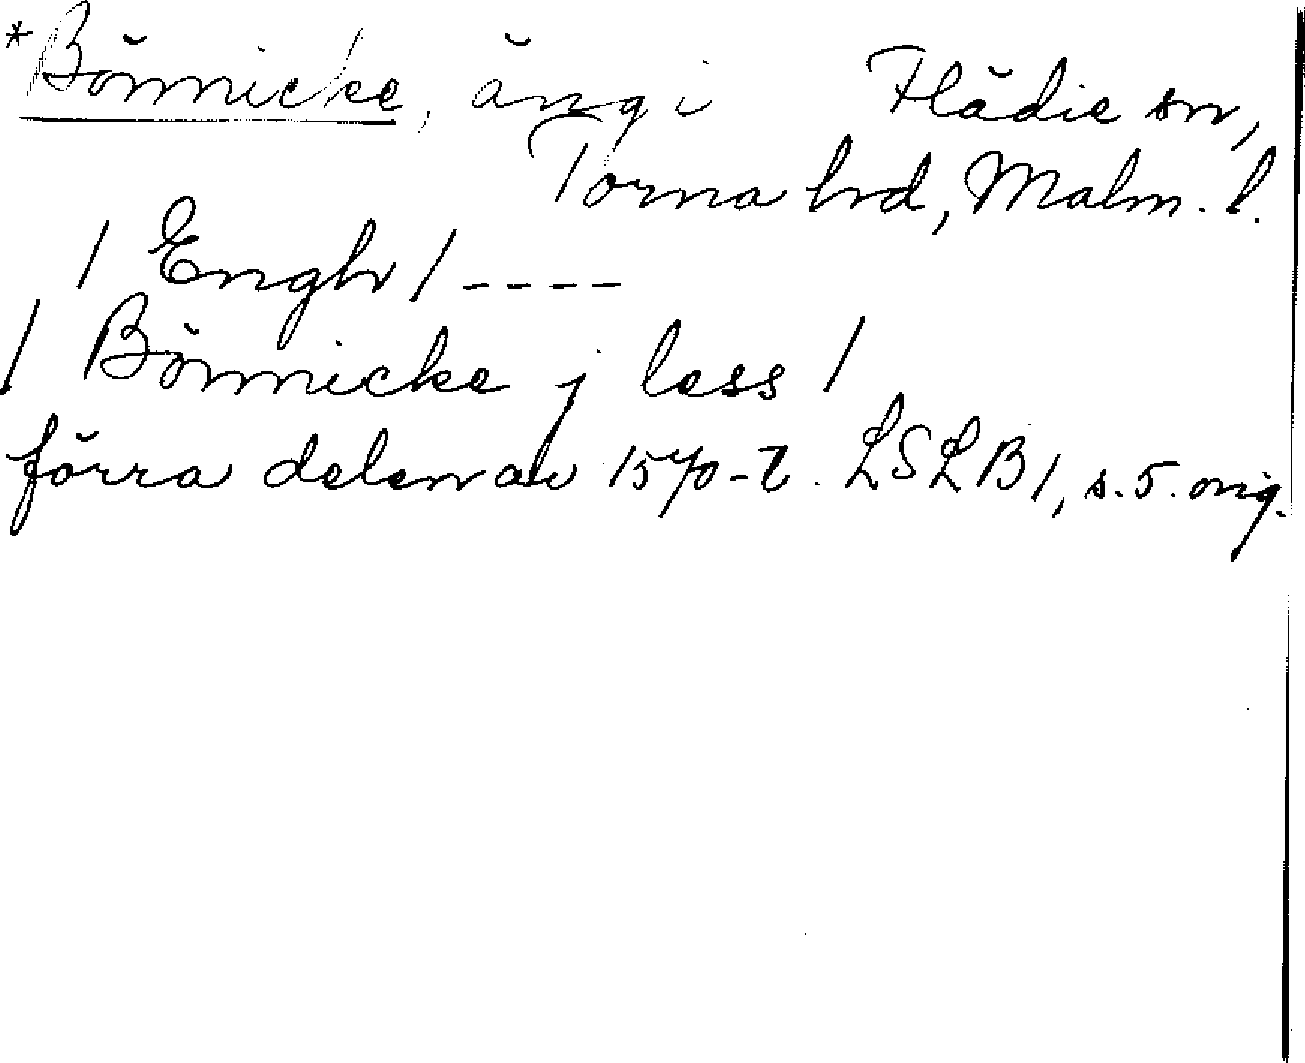 *Bönnicke, äng i Flädie sn,
Torna hrd, Malm. l.
/ Enghr / ----
/ Bönnicke j less /
förra delen av 1570-t. LSLB 1, s. 5. orig.